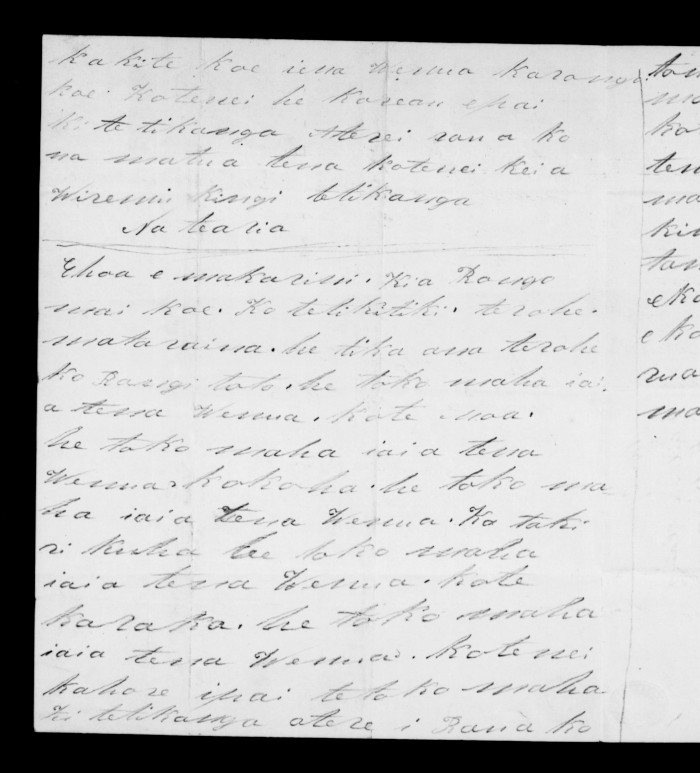 Kakite koe iena Wenua Karanga
koe. Kotenei he Korean epai
Ki te tikanga Aterei rana ko
na matua tena kotenei kei a
Wiremu Kingi tetikanga
Na tearia
Ehoa e makarini. Kia Rongo
mai koe. Ko tetikitiki. terohe.
mataraina. he tika ana terohe
Ko Rangi toto. he toko maha iai.
a tena Wenua. kote moa.
he toko maha iaia tena
Wenua. kokoha. he toko ma
ha iaia tena Wenua. Ko taki
ri kuha he toko maha
iaia tena Wenua. kote
karaka. he toko maha
iaia tena Wenua. kotenei
kahore ipai te toko maha
Ki tetikanga atere i Rana ko
tan
ko
ten
ma
kin
tan
eko
e ko
rua
ma